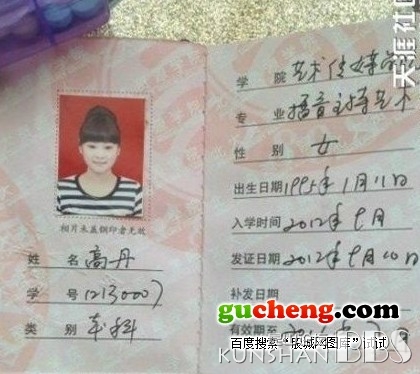 天涯社
相片未盖钢印者无效
姓 名 高丹
学 号
类 别 本科
学 院 艺术传媒学
专 业 播音主持艺术
性 别 女
出生日期 1995年1月11日
入学时间 2012年9月
发证日期 2012年9月10日
补发日期
gucheng.com
有效期至
百度搜索“股城网图库”试试
KUNSHAN BBS